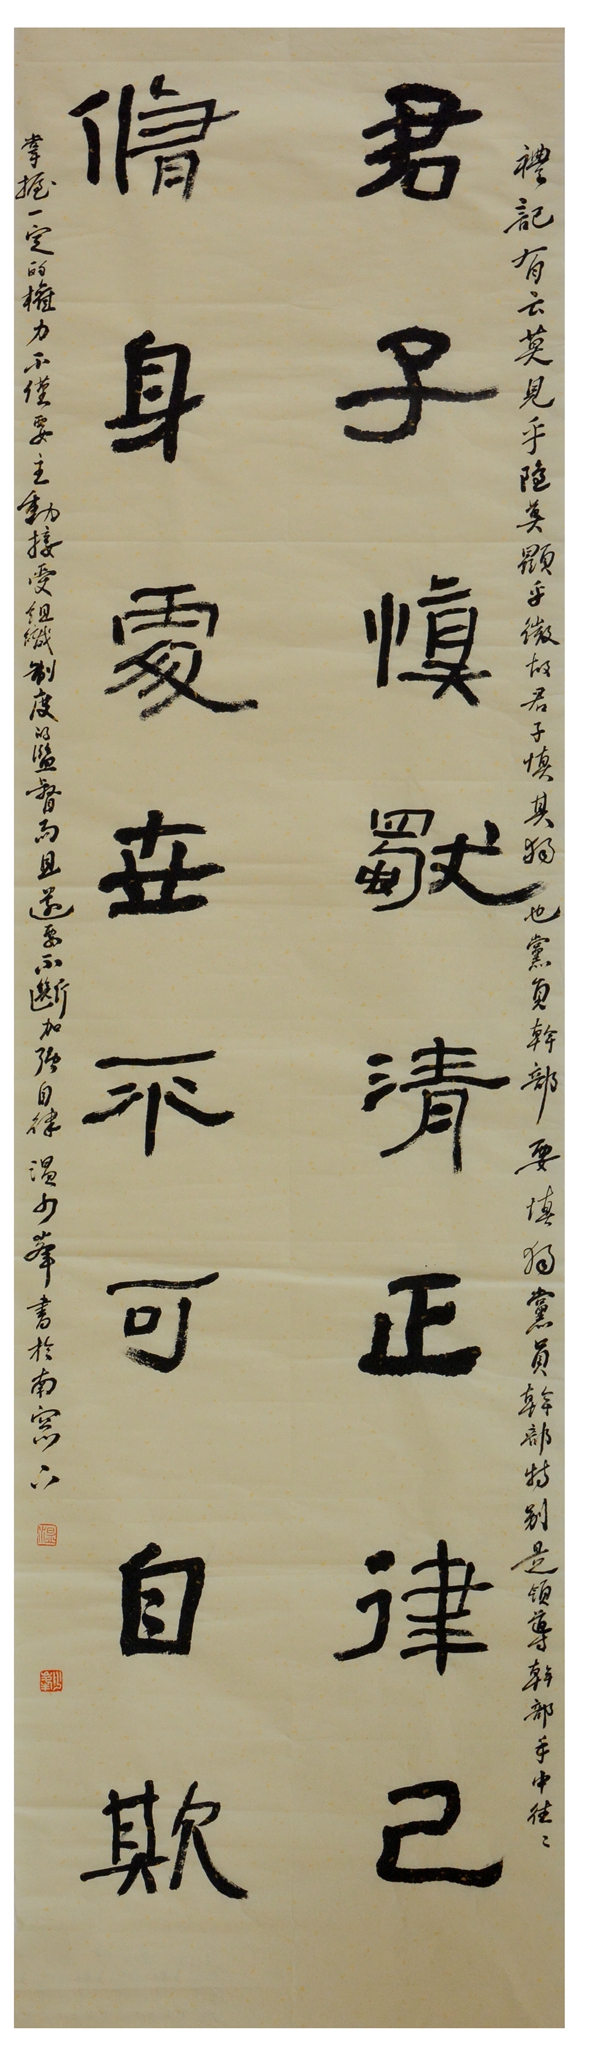 禮記有云莫見乎隱莫顯乎微故君子慎其獨也黨員幹部要慎獨黨員幹部特別是領導幹部手中往〻
君子慎獨清正律己
脩身處世不可自欺
掌握一定的權力不僅要主動接受組織制度的監督而且還要不斷加强自律 溫少峯書於南窓下